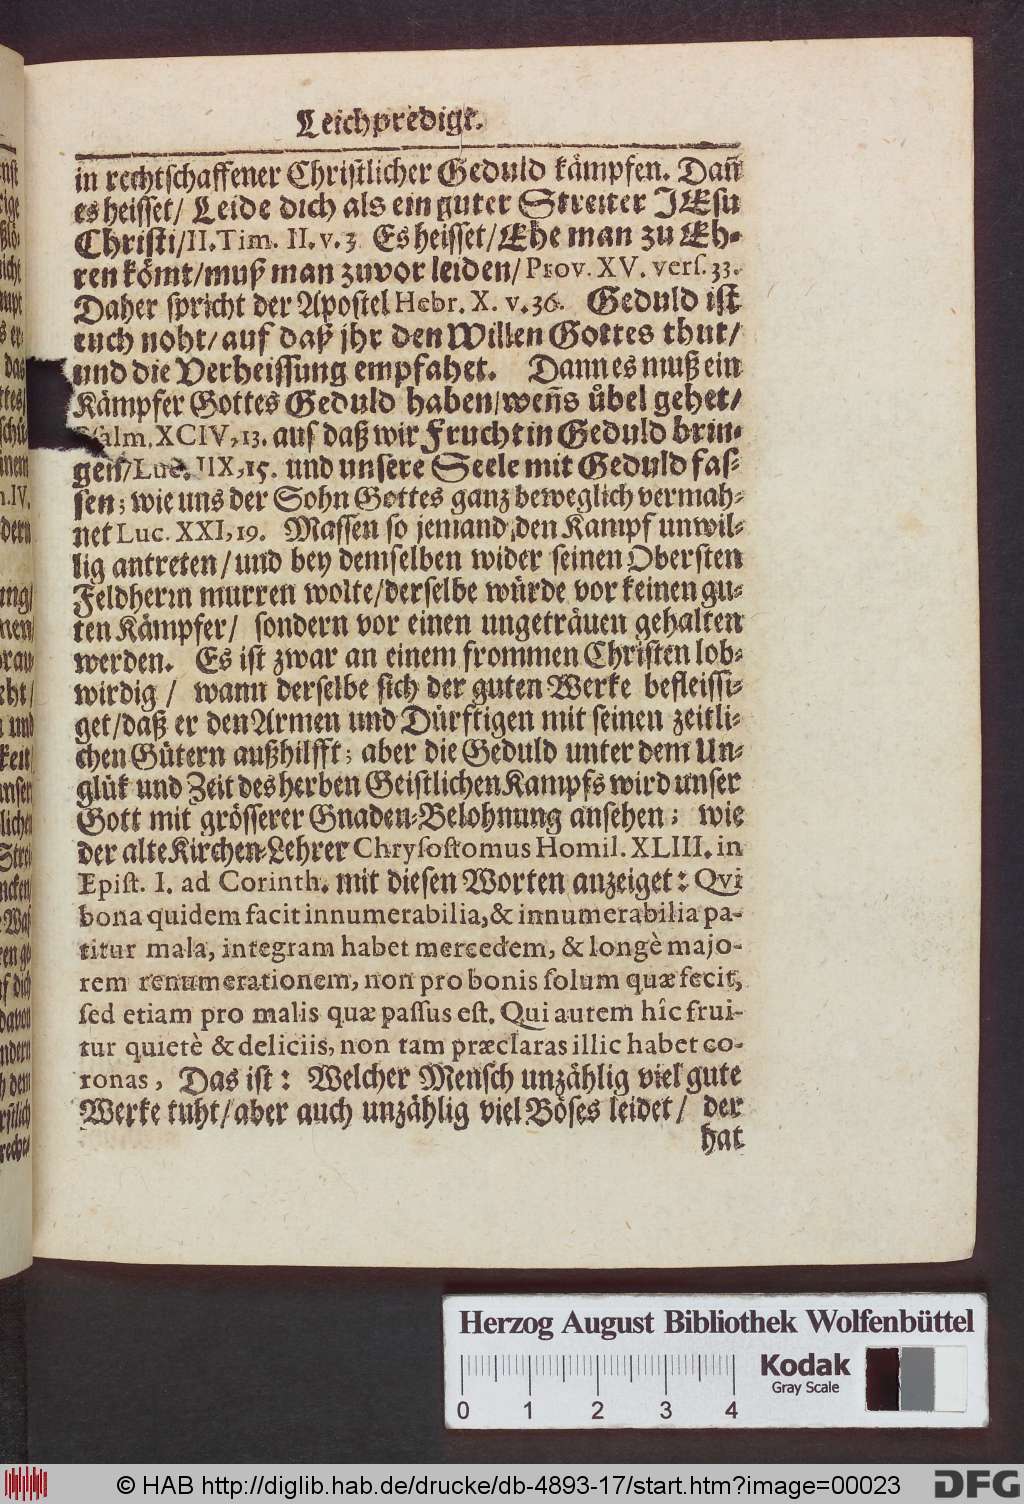 Leichpredigt.
in rechtschaffener Christlicher Geduld kämpfen. Dañ
es heisset/ Leide dich als ein guter Streiter JEsu
Christi/II. Tim. II. v. 3. Es heisset/Ehe man zu Eh-
ren kömt/muß man zuvor leiden/Prov. XV. vers. 33.
Daher spricht der Apostel Hebr. X. v. 36. Geduld ist
euch noht/auf daß jhr den Willen Gottes thut/
und die Verheissung empfahet. Dann es muß ein
Kämpfer Gottes Geduld haben/weñs übel gehet/
Psalm. XCIV, 13. auf daß wir Frucht in Geduld brin-
gen/Luc. IIX, 15. und unsere Seele mit Geduld fas-
sen; wie uns der Sohn Gottes ganz beweglich vermah-
net Luc. XXI, 19. Massen so jemand den Kampf unwil-
lig antreten/und bey demselben wider seinen Obersten
Feldherrn murren wolte/derselbe würde vor keinen gu-
ten Kämpfer/ sondern vor einen ungeträuen gehalten
werden. Es ist zwar an einem frommen Christen lob-
wirdig/ wann derselbe sich der guten Werke befleissi-
get/daß er den Armen und Dürftigen mit seinen zeitli-
chen Gütern außhilfft; aber die Geduld unter dem Un-
glük und Zeit des herben Geistlichen Kampfs wird unser
Gott mit grösserer Gnaden-Belohnung ansehen; wie
der alte Kirchen-Lehrer Chrysostomus Homil. XLIII. in
Epist. I. ad Corinth. mit diesen Worten anzeiget: Qvi
bona quidem facit innumerabilia, & innumerabilia pa-
titur mala, integram habet mercedem, & longè majo-
rem renumerationem, non pro bonis solum quæ fecit,
sed etiam pro malis quæ passus est. Qui autem hîc frui-
tur quietè & deliciis, non tam præclaras illic habet co-
ronas, Das ist: Welcher Mensch unzählig viel gute
Werke tuht/aber auch unzählig viel Böses leidet/ der
hat
Herzog August Bibliothek Wolfenbüttel
Kodak
Gray Scale
0 1 2 3 4
© HAB http://diglib.hab.de/drucke/db-4893-17/start.htm?image=00023
DFG